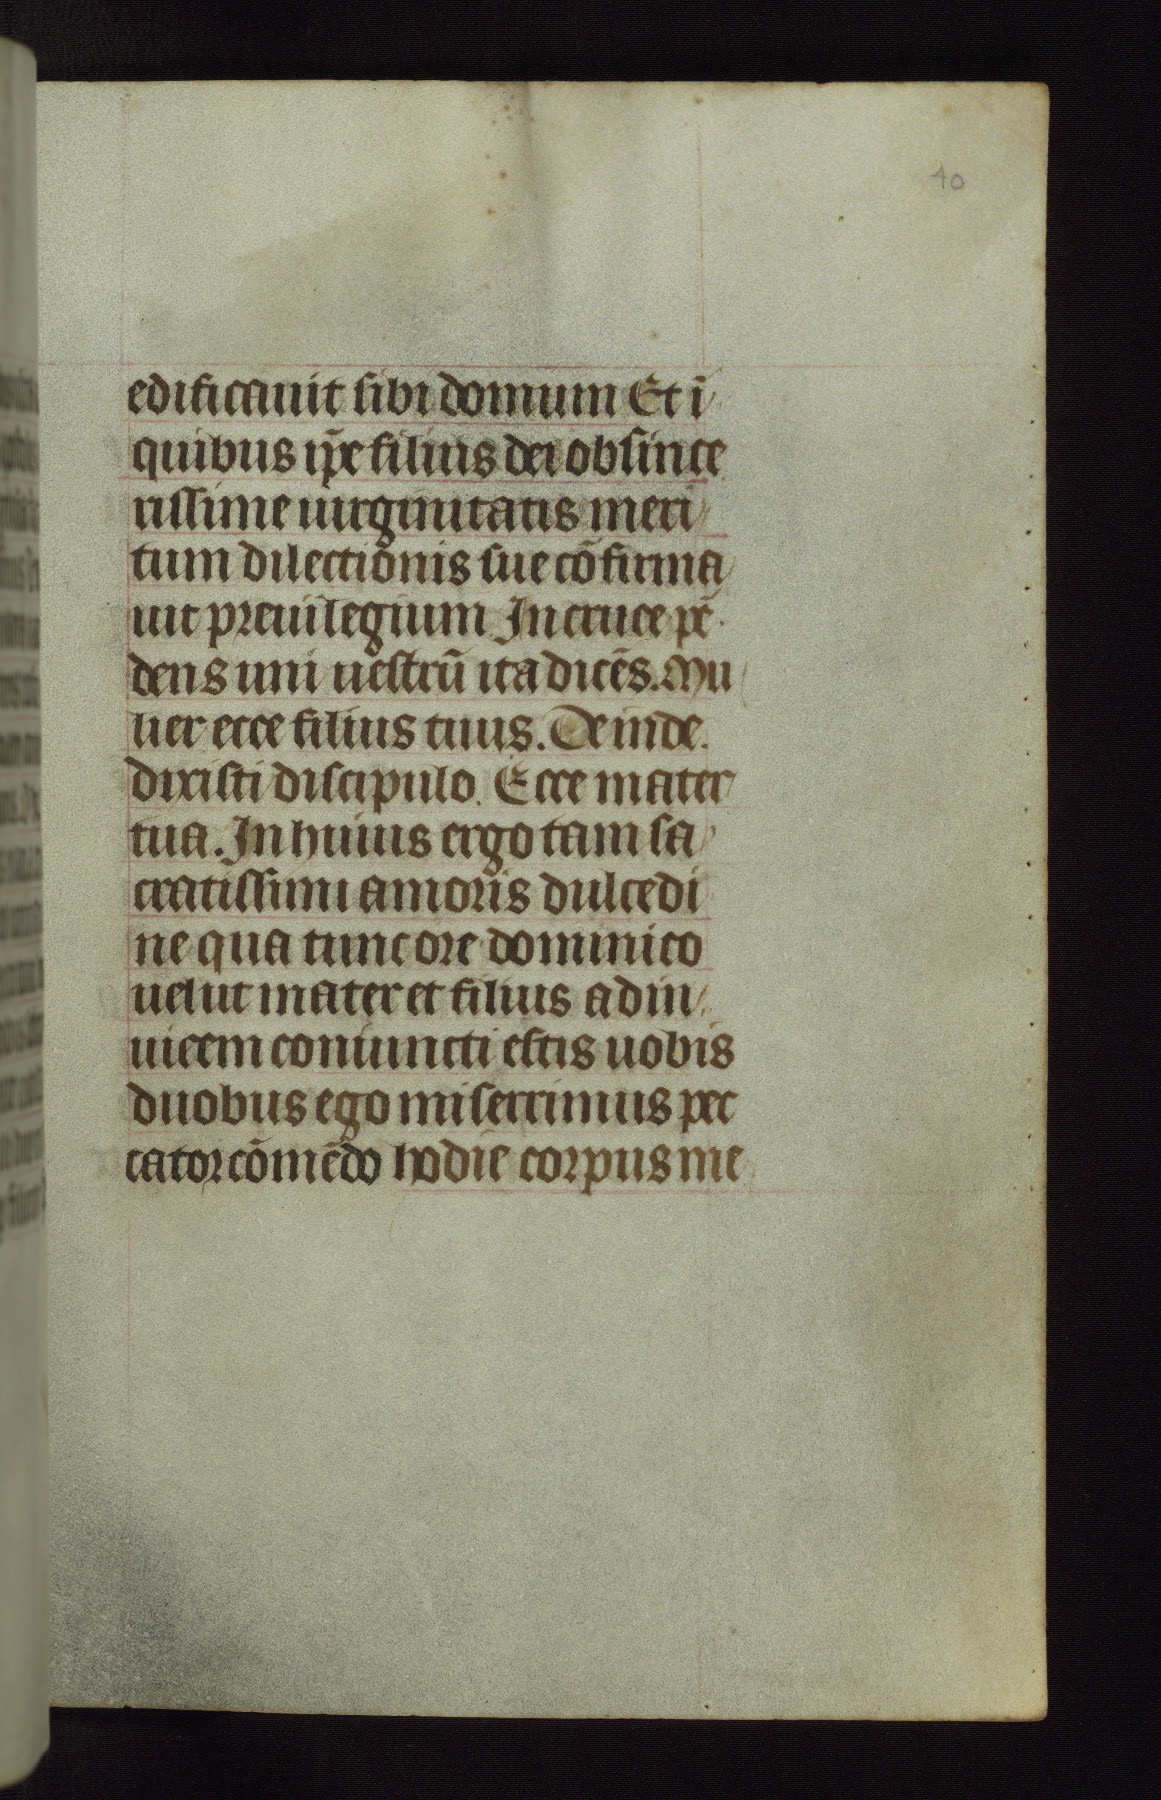 40
edificauit sibi domum Et ī
quibus ip̄e filius dei obsince
rissime uirginitatis meri
tum dilectionis sue cōfirma
uit preuilegium In cruce pē
dens uni uestrū ita dicēs. Mu
lier ecce filius tuus. Deinde.
dixisti discipulo. Ecce mater
tua. In huius ergo tam sa
cratissimi amoris dulcedi
ne qua tunc ore dominico
uelut mater et filius adin
uicem coniuncti estis uobis
duobus ego miserrimus pec
cator cōmēdo hodie corpus me